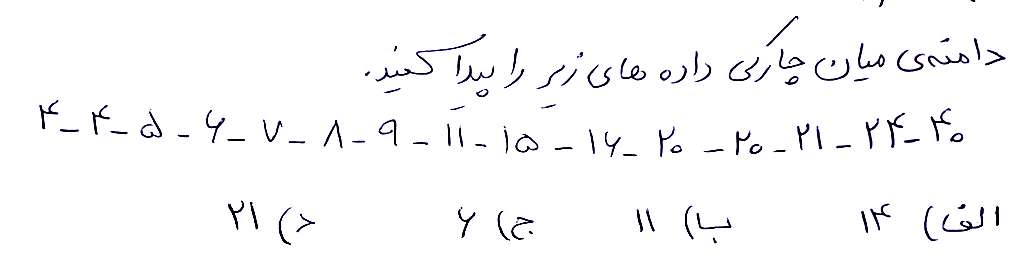 دامنه‌ی میان چارکی داده های زیر را پیدا کنید.
۴ - ۴ - ۵ - ۶ - ۷ - ۸ - ۹ - ۱۱ - ۱۵ - ۱۶ - ۲۰ - ۲۰ - ۲۱ - ۲۴ - ۴۰
الف) ۱۴ ب) ۱۱ ج) ۶ د) ۲۱